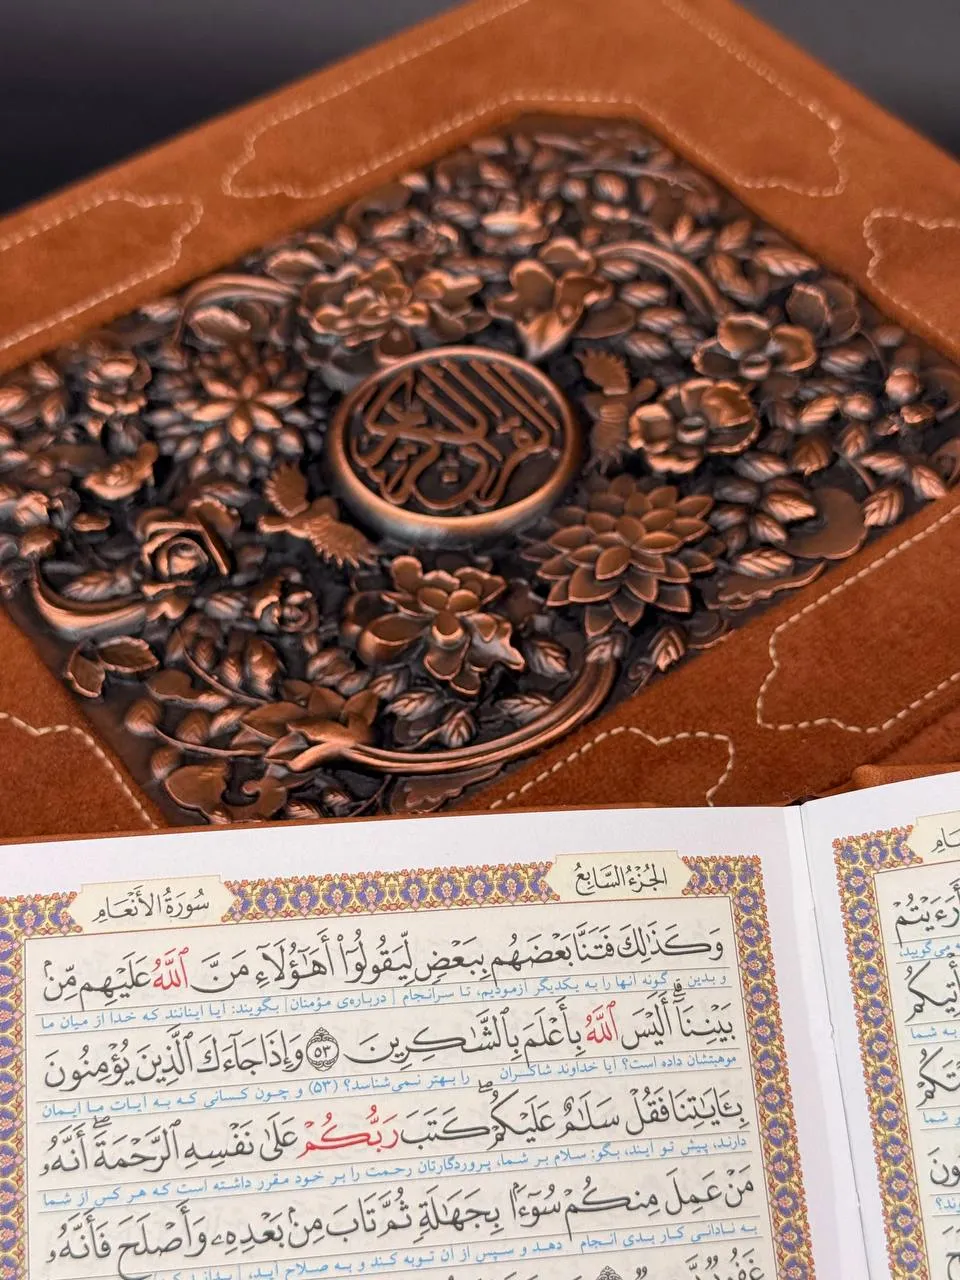 القرآن الكریم
الجُزْءُ السَّابِعُ
سُورَةُ الأَنْعَامِ
وَكَذَٰلِكَ فَتَنَّا بَعْضَهُم بِبَعْضٍ لِّيَقُولُوٓا۟ أَهَٰٓؤُلَآءِ مَنَّ ٱللَّهُ عَلَيْهِم مِّنۢ
و بدین گونه آنها را به یکدیگر آزمودیم، تا سرانجام | درباره‌ی مؤمنان | بگویند: آیا اینانند که خدا از میان ما
بَيْنِنَآ ۗ أَلَيْسَ ٱللَّهُ بِأَعْلَمَ بِٱلشَّٰكِرِينَ ۝٥٣ وَإِذَا جَآءَكَ ٱلَّذِينَ يُؤْمِنُونَ
موهبتشان داده است؟ آیا خداوند شاکران را بهتر نمی‌شناسد؟ (۵۳) و چون کسانی که به آیات ما ایمان
بِـَٔايَٰتِنَا فَقُلْ سَلَٰمٌ عَلَيْكُمْ ۖ كَتَبَ رَبُّكُمْ عَلَىٰ نَفْسِهِ ٱلرَّحْمَةَ ۖ أَنَّهُۥ
دارند، پیش تو آیند، بگو: سلام بر شما، پروردگارتان رحمت را بر خود مقرر داشته است که هر کس از شما
مَنْ عَمِلَ مِنكُمْ سُوٓءًۢا بِجَهَٰلَةٍ ثُمَّ تَابَ مِنۢ بَعْدِهِۦ وَأَصْلَحَ فَأَنَّهُۥ
به نادانی کار بدی انجام دهد و سپس از آن توبه کند و به صلاح آید،
أَرَءَيْتُمْ
به شما